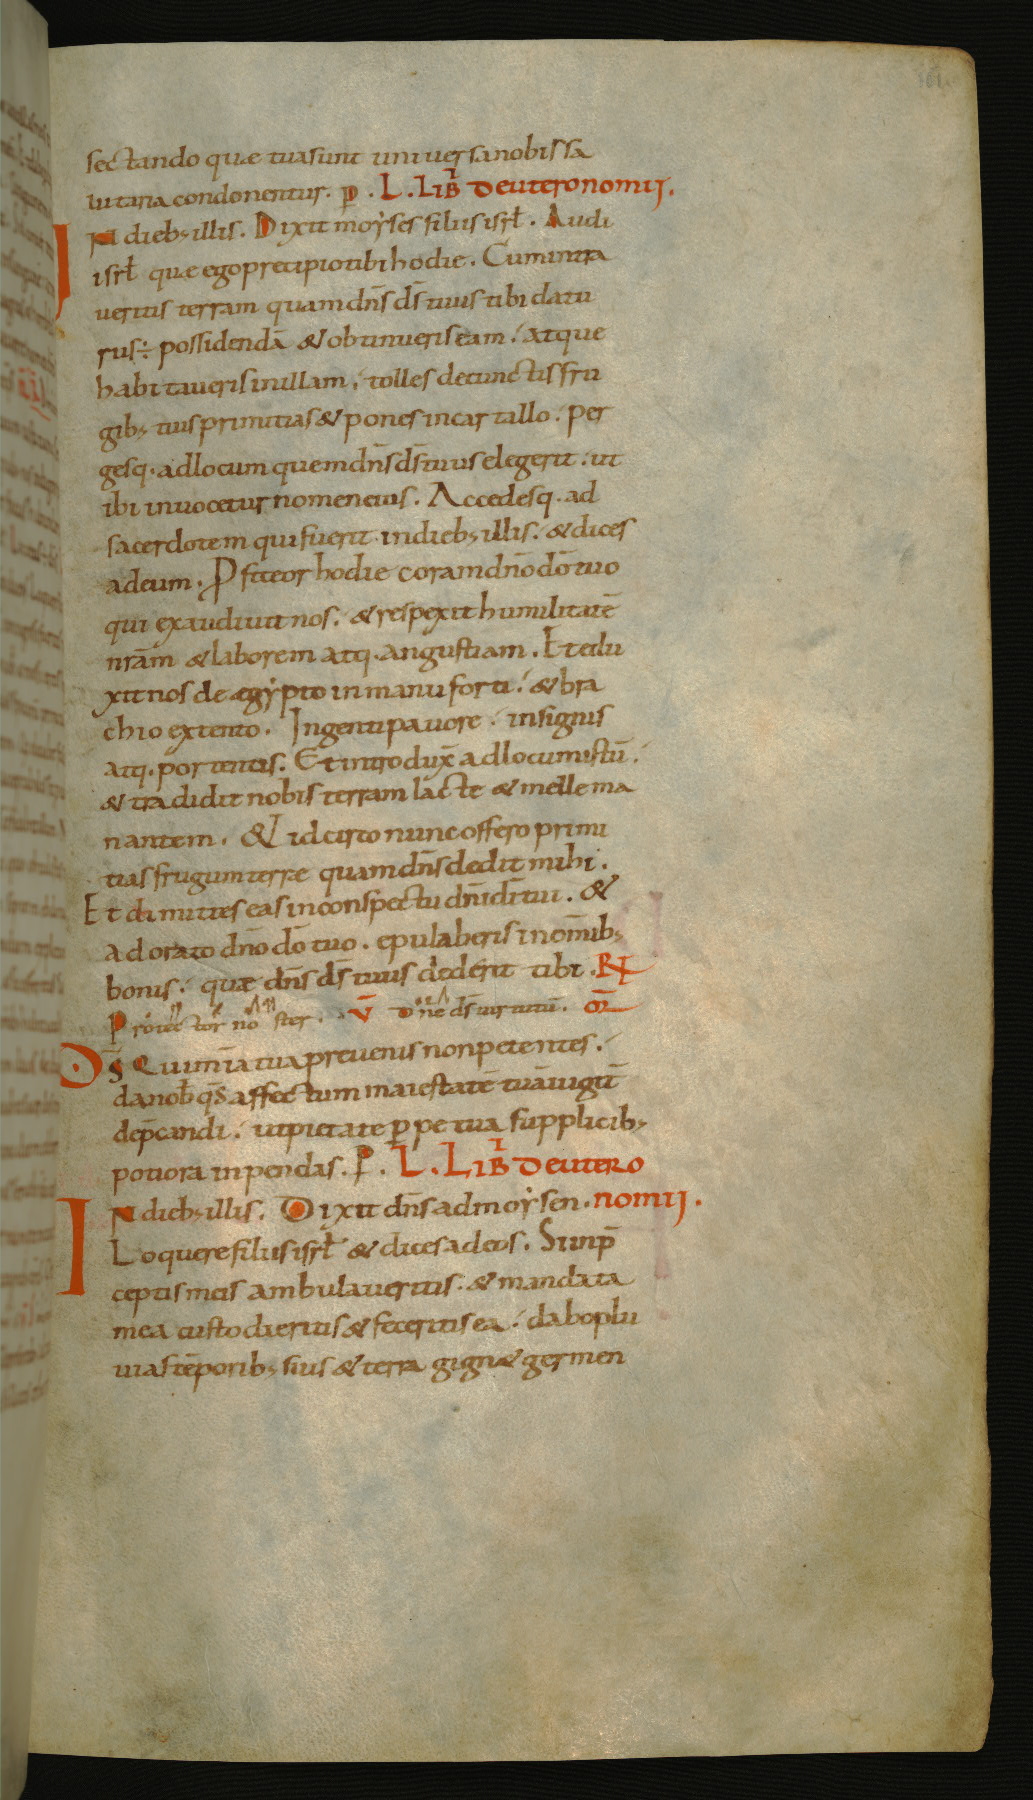 sectando quae tua sunt universa nobis sa
lutaria condonentur. p. L. LIB̄I Deuteronomii.
In dieb; illis. Dixit moẏses filiis isrł. Audi
isrł quae ego precipio tibi hodie. Cum intra
veritis terram quam dn̄s ds̄ tuus tibi datu
rus÷ possidendā & obtinueris eam. atque
habitaveris in illam. tolles de cunctis fru
gib; tuis primitias & pones in cartallo. per
gesq. ad locum quem dn̄s ds̄ tuus elegerit. ut
ibi invocetur nomen eius. Accedesq. ad
sacerdotem qui fuerit in dieb; illis. & dices
ad eum. Pfiteor hodie coram dn̄o dō tuo
qui exaudivit nos. & respexit humilitatē
nrām & laborem atq. angustiam. Et edu
xit nos de egẏpto in manu forti. & bra
chio extento. Ingenti pavore. in signis
atq. portentis. Et introdux̄ ad locum istū.
& tradidit nobis terram lacte & melle ma
nantem. & idcirco nunc offero primi
tias frugum terrae quam dn̄s dedit mihi.
Et dimittes eas in conspectu dn̄i dī tui. &
adorato dn̄o dō tuo. epulaberis in om̄ib;
bonis. quae dn̄s ds̄ tuus dederit tibi. R̷
Protector noster. v̄ Dn̄e ds̄ virtutū. or̄
Ds̄ Qui mīa tua prevenis non petentes.
da nob̄ qs̄ affectum maiestatē tuā iugit̄
dep̄candi. ut pietate ꝑpetua supplicib;
potiora inpendas. P. L. LIB̄I Deutero
In dieb; illis. Dixit dn̄s ad moẏsen. nomii.
Loquere filiis isrł & dices ad eos. Si in p̄
ceptis meis ambulaveritis. & mandata
mea custodieritis & feceritis ea. dabo plu
uias tēporib; suis & terra gign& germen